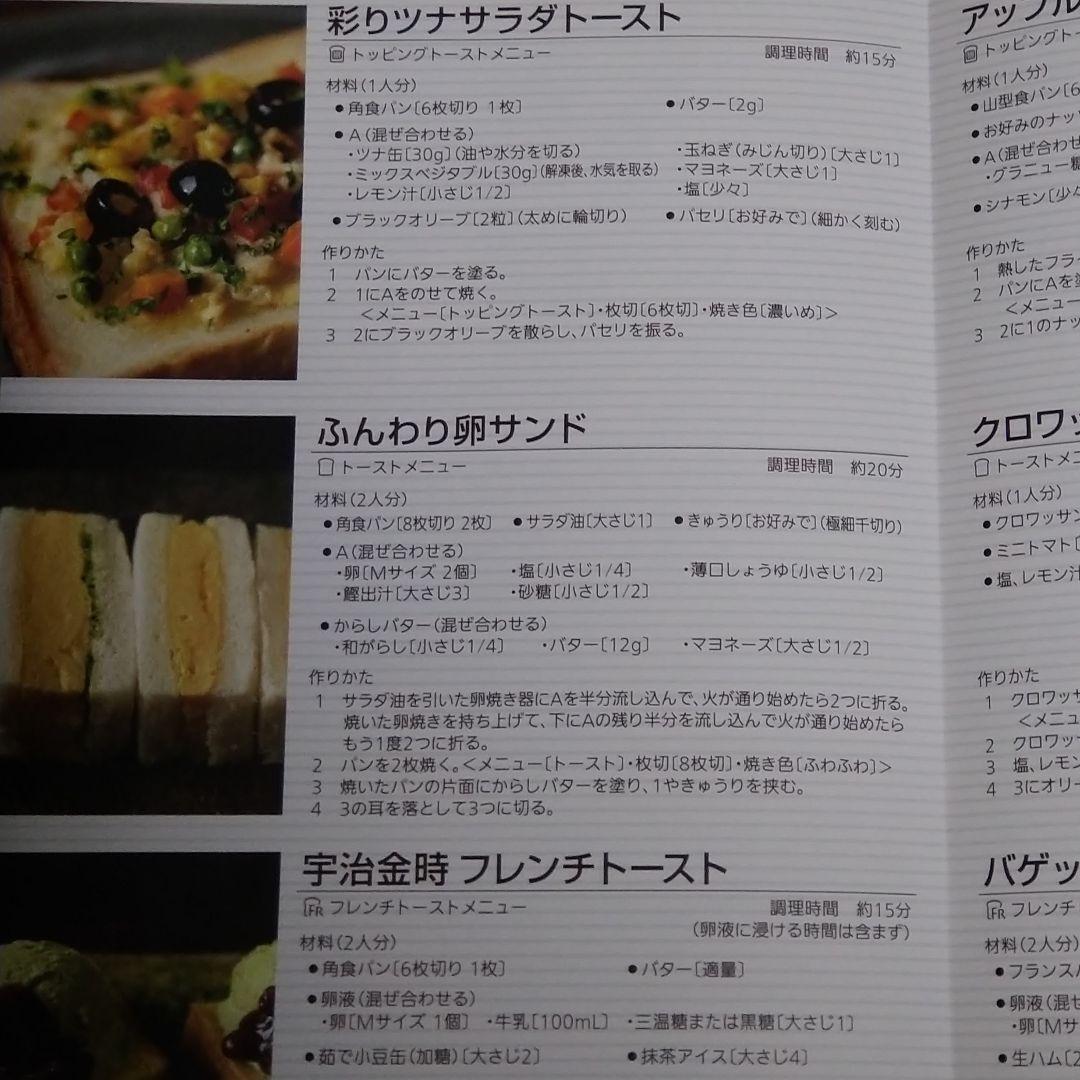 彩りツナサラダトースト
トッピングトーストメニュー 調理時間 約15分
材料(1人分)
●角食パン[6枚切り 1枚] ●バター[2g]
●A(混ぜ合わせる)
・ツナ缶[30g](油や水分を切る) ・玉ねぎ(みじん切り)[大さじ1]
・ミックスベジタブル[30g](解凍後、水気を取る) ・マヨネーズ[大さじ1]
・レモン汁[小さじ1/2] ・塩[少々]
●ブラックオリーブ[2粒](太めに輪切り) ●パセリ[お好みで](細かく刻む)
作りかた
1 パンにバターを塗る。
2 1にAをのせて焼く。
<メニュー[トッピングトースト]・枚切[6枚切]・焼き色[濃いめ]>
3 2にブラックオリーブを散らし、パセリを振る。
ふんわり卵サンド
トーストメニュー 調理時間 約20分
材料(2人分)
●角食パン[8枚切り 2枚] ●サラダ油[大さじ1] ●きゅうり[お好みで](極細千切り)
●A(混ぜ合わせる)
・卵[Mサイズ 2個] ・塩[小さじ1/4] ・薄口しょうゆ[小さじ1/2]
・鰹出汁[大さじ3] ・砂糖[小さじ1/2]
●からしバター(混ぜ合わせる)
・和がらし[小さじ1/4] ・バター[12g] ・マヨネーズ[大さじ1/2]
作りかた
1 サラダ油を引いた卵焼き器にAを半分流し込んで、火が通り始めたら2つに折る。
焼いた卵焼きを持ち上げて、下にAの残り半分を流し込んで火が通り始めたら
もう1度2つに折る。
2 パンを2枚焼く。<メニュー[トースト]・枚切[8枚切]・焼き色[ふわふわ]>
3 焼いたパンの片面にからしバターを塗り、1やきゅうりを挟む。
4 3の耳を落として3つに切る。
宇治金時 フレンチトースト
FR フレンチトーストメニュー 調理時間 約15分
(卵液に浸ける時間は含まず)
材料(2人分)
●角食パン[6枚切り 1枚] ●バター[適量]
●卵液(混ぜ合わせる)
・卵[Mサイズ 1個] ・牛乳[100mL] ・三温糖または黒糖[大さじ1]
●茹で小豆缶(加糖)[大さじ2] ●抹茶アイス[大さじ4]
アップル
トッピングトー
材料(1人分)
●山型食パン[6
●お好みのナッツ
●A(混ぜ合わせ
・グラニュー糖
●シナモン[少々
作りかた
1 熱したフラ
2 パンにAを塗
<メニュー
3 2に1のナッ
クロワッ
トーストメニ
材料(1人分)
●クロワッサン
●ミニトマト[
●塩、レモン汁
作りかた
1 クロワッサ
<メニュ
2 クロワッ
3 塩、レモン
4 3にオリー
バゲッ
FR フレンチ
材料(2人分)
●フランスパ
●卵液(混ぜ
・卵[Mサ
●生ハム[2